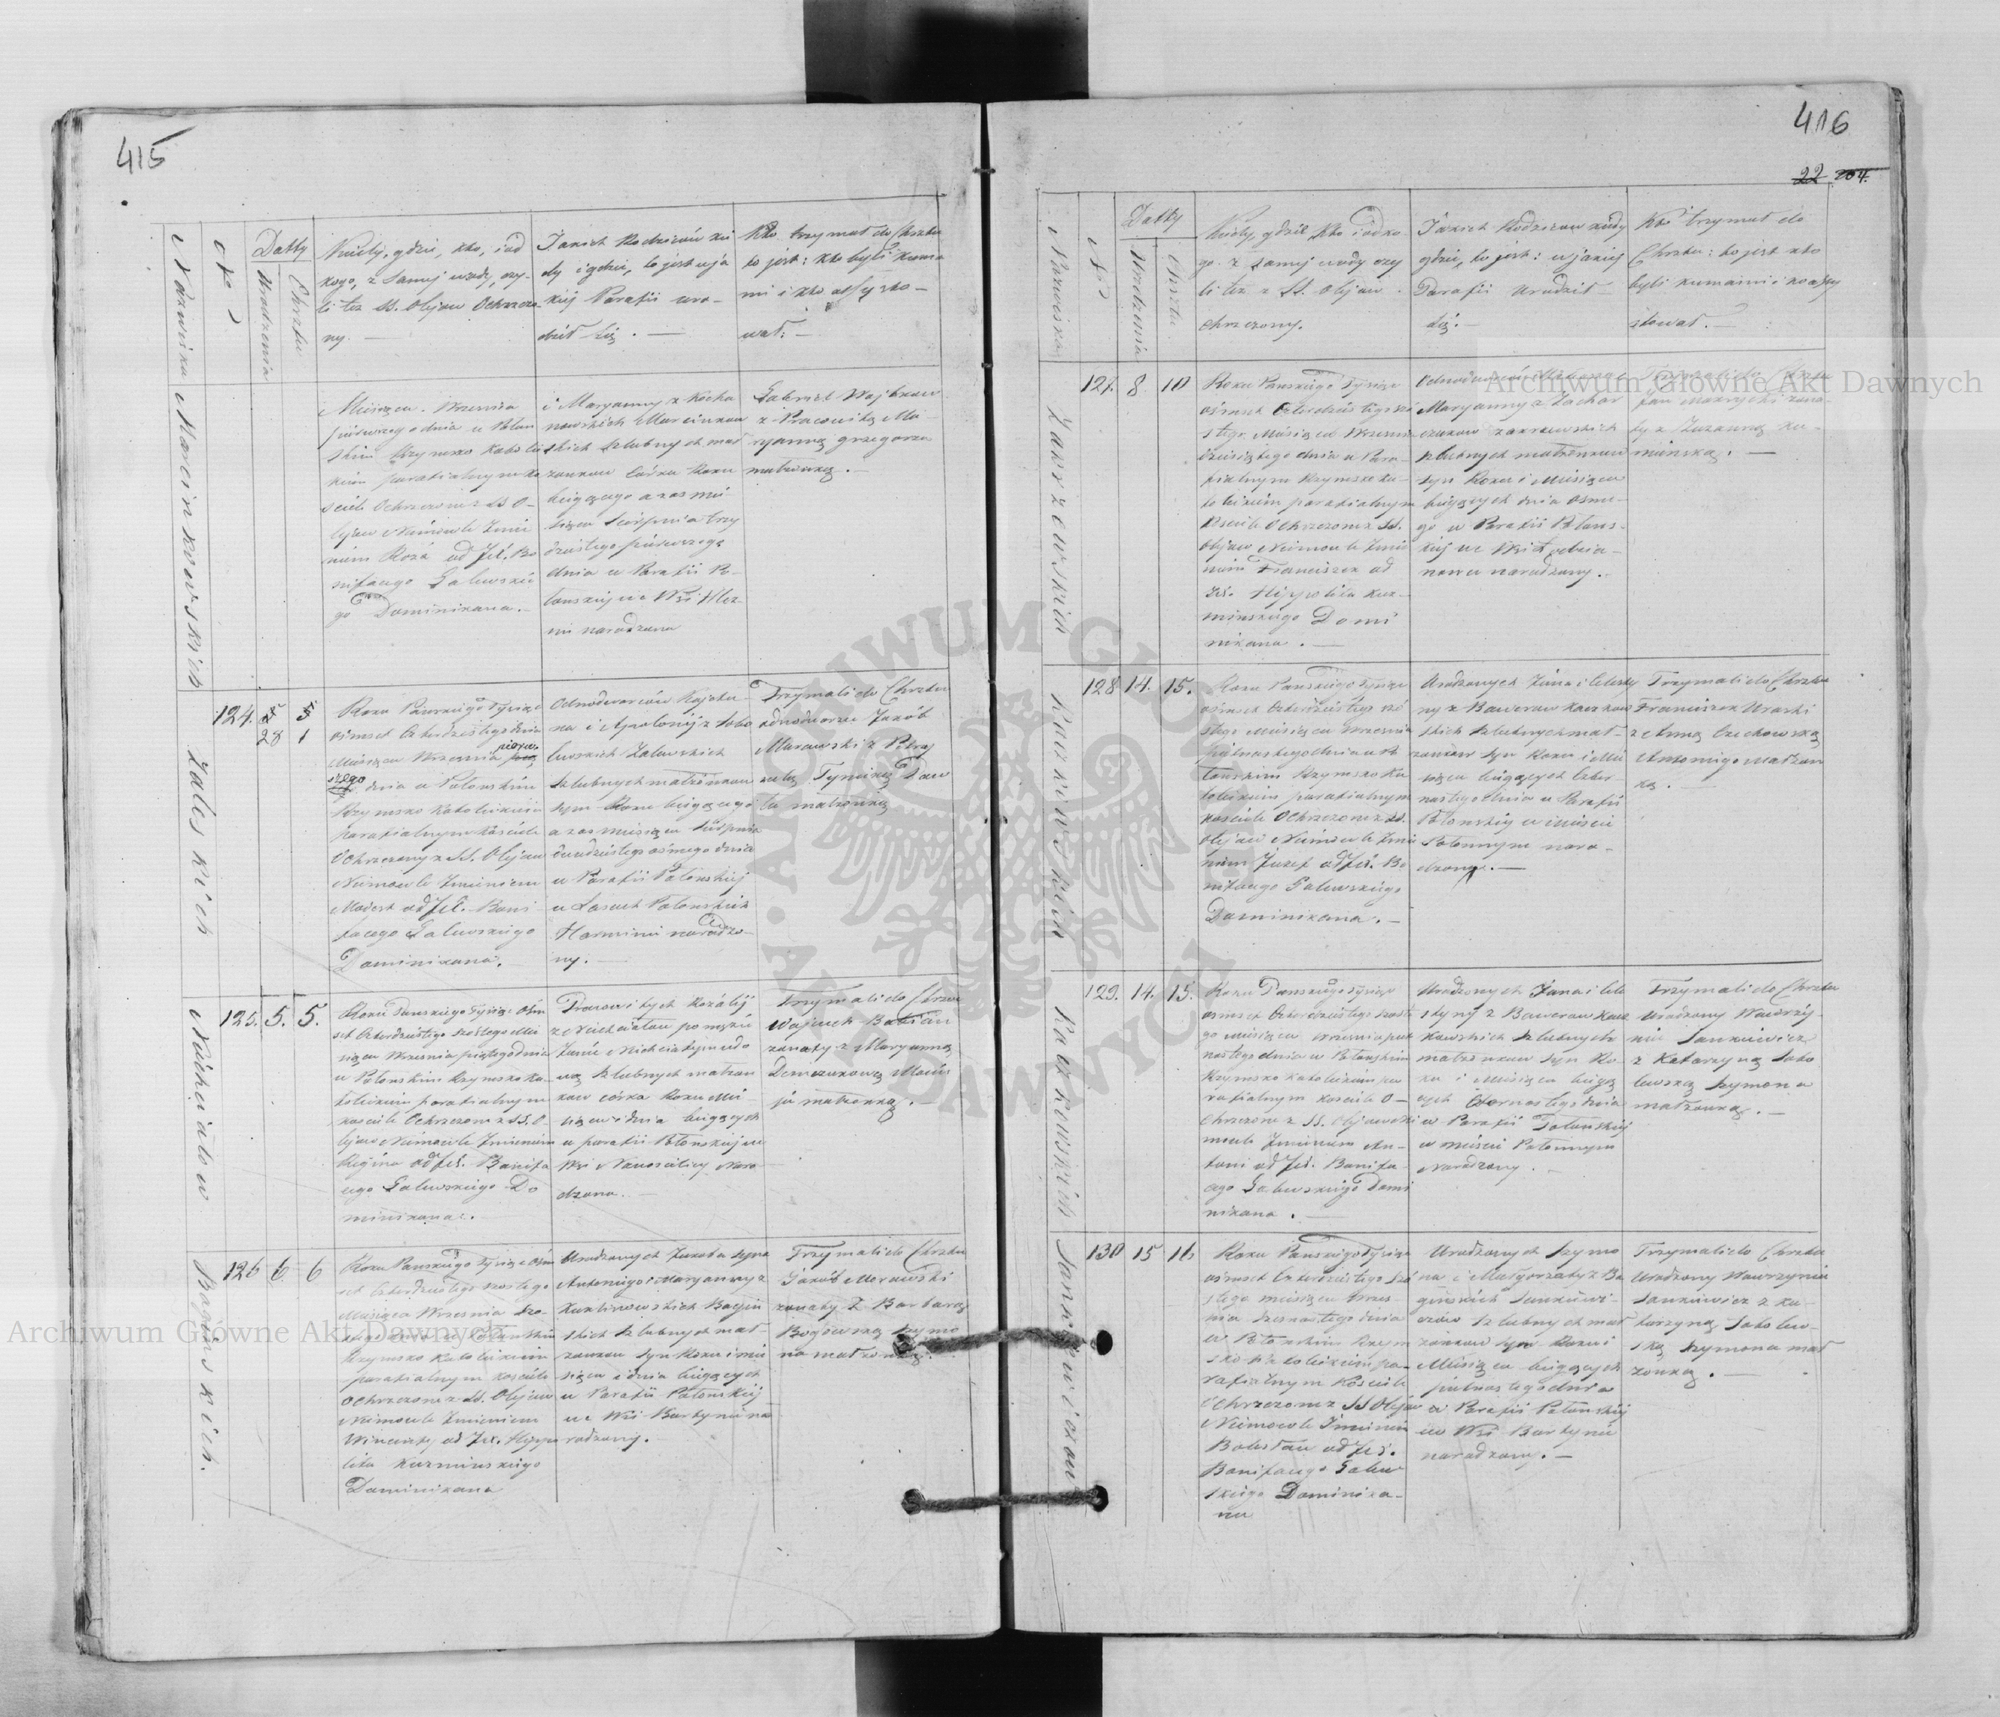 415
Nazwiska
No
Datty
Urodzenia
Chrztu
Kiedy, gdzie, kto, i od
kogo, z samej wody, czy
li też SS. Olejów Ochrzczo
ny. —
Jakich Rodziców kie
dy i gdzie, to jest w ja
kiej Parafii uro-
dził się. —
Kto trzymał do Chrztu
to jest: kto byli kuma
mi i kto assysto-
wał. —
Marcinkowskich
Miesiąca Września
pierwszego dnia w Połon
skim Rzymsko Katolic
kim parafialnym ko
ściele Ochrzczona z SS O-
lejów Niemowle Imie
niem Roza od Jx. Bo
nifacego Galewskie
go Dominikana. —
i Maryanny z Kocha
nowskich Marcinkow
skich Szlubnych mał
żonków córka Roku
bieżącego a zaś mie
siąca Sierpnia trzy
dziestego pierwszego
dnia w Parafii Po-
łonskiej we Wsi
narodzona
Gabriel Wojtkow
z Pracowitą Ma-
ryanną Grzegorza
małżonką. —
Zaleskich
124. 28 1
Roku Pańskiego Tysiąc
ośmset Czterdziestego
Miesiąca Września pierw
szego dnia w Połonskim
Rzymsko Katolickim
Parafialnym kościele
Ochrzczony z SS. Olejów
Niemowle Imieniem
Modest od Jx. Boni-
facego Galewskiego
Dominikana.
Odnodworców Kajeta-
na i Apolonij z
Zalewskich
Szlubnych małżonków
syn Roku bieżącego
a zaś miesiąca Sierpnia
dwudziestego ośmego dnia
w Parafii Połonskiej
w Lasach Połonskich
narodzo-
ny. —
Trzymali do Chrztu
odnodworzec Jakób
Murawski z
małżonką
Nichciałow
125. 5. 5.
Roku Pańskiego Tysiąc Ośm
set Czterdziestego szóstego Mie
siąca Września piątego dnia
w Połonskim Rzymsko Ka-
tolickim parafialnym
kościele Ochrzczona z SS. O
lejów Niemowle Imieniem
Regina od Jx. Bonifa
cego Galewskiego Do
minikana. —
Pracowitych Rozalij
z Nichciałow po mężu
Szlubnych małżon
ków córka Roku Mie
siąca i dnia bieżących
w parafii Połonskiej we
Wsi Nowosielicy Naro
dzona. —
Trzymali do Chrztu
Wojciech
żonaty z Maryanną
Demczukową Macie
ja małżonką. —
Bagińskich.
126 6 6
Roku Pańskiego Tysiąc Ośm
set Czterdziestego szóstego
Miesiąca Września szó-
stego dnia w Połonskim
Rzymsko Katolickim
parafialnym kościele
Ochrzczone z SS. Olejów
Niemowle Imieniem
Wincenty od Jx. Hippo
lita Kuzmińskiego
Dominikana
Urodzonych Jakóba syna
Antoniego i Maryanny z
Bagiń
skich Szlubnych mał-
żonków syn Roku i mie
siąca i dnia bieżących
w Parafii Połonskiej
we Wsi Burtynie na
rodzony. —
Trzymali do Chrztu
Jakób Morawski
żonaty z Barbarą
Szymo
na małżonką.
416
22 204.
Nazwiska
No
Datty
Urodzenia
Chrztu
Kiedy, gdzie, kto i od ko
go z samej wody czy
li też z SS. Olejów
Ochrzczony.
Jakich Rodziców kiedy
gdzie, to jest: w jakiej
Parafii Urodził
się. —
Kto trzymał do
Chrztu: to jest kto
byli kumami i kto assy
stował. —
Zakrzewskich
127. 8 10
Roku Pańskiego Tysiąc
ośmset Czterdziestego szó
stego Miesiąca Września
dziesiątego dnia w Para-
fialnym Rzymsko Ka-
tolickim parafialnym
kościele Ochrzczone z SS.
Olejów Niemowle Imie
niem Franciszek od
Jx. Hippolita Kuz-
mińskiego Domi
nikana. —
Maryanny z Zachar
czuków Zakrzewskich
szlubnych małżonków
syn Roku i Miesiąca
bieżących dnia ośme-
go w Parafii Połons-
kiej we Wsi
narodzony. —
Trzymali do Chrztu
Jan Mokrycki żona-
ty z Zuzanną Ku-
minską. —
Kaczkowskich
128 14. 15.
Roku Pańskiego Tysiąc
ośmset Czterdziestego szó
stego Miesiąca Września
piętnastego dnia w Po
łonskim Rzymsko Ka
tolickim parafialnym
kościele Ochrzczone z SS.
Olejów Niemowle Imie
niem Jozef od Jx. Bo
nifacego Galewskiego
Dominikana. —
Urodzonych Jana i Celesty
ny z Bawerow Kaczkow
skich Szlubnych mał-
żonków syn Roku i Mie
siąca bieżących Czter
nastego dnia w Parafii
Połonskiej w mieście
Połonnym naro-
dzony. —
Trzymali do Chrztu
Franciszek Uraski
z Anną Czechowską
Antoniego Małżon
ką. —
Kaczkowskich
129. 14. 15.
Roku Pańskiego Tysiąc
ośmset Czterdziestego szóste
go miesiąca września pięt
nastego dnia w Połonskim
Rzymsko Katolickim pa
rafialnym kościele O-
chrzczone z SS. Olejów Nie
mowle Imieniem An-
toni od Jx. Bonifa-
cego Galewskiego Domi
nikana. —
Urodzonych Jana i Cele
styny z Bawerow Kacz
kowskich Szlubnych
małżonków syn Ro-
ku i Miesiąca bieżą
cych Czternastego dnia
w Parafii Połonskiej
w mieście Połonnym
Narodzony. —
Trzymali do Chrztu
Urodzony Wawrzy-
niec Jankiewicz
z Katarzyną Soko
łowską Szymona
małżonką. —
Jankiewiczow
130 15 16
Roku Pańskiego Tysiąc
ośmset Czterdziestego szó
stego miesiąca Wrześ-
nia szesnastego dnia
w Połonskim Rzym
sko Katolickim pa-
rafialnym Kościele
Ochrzczone z SS Olejów
Niemowle Imieniem
Bolesław od Jx.
Bonifacego Galew
skiego Dominika-
na
Urodzonych Szymo
na i Małgorzaty z Ba
gińskich Jankiewi-
czów Szlubnych mał
żonków syn Roku i
Miesiąca bieżących
piętnastego dnia
w Parafii Połonskiej
we Wsi Burtynie
narodzony. —
Trzymali do Chrztu
Urodzony Wawrzyniec
Jankiewicz z Ka-
tarzyną Sokołow-
ską Szymona mał
żonką. —
Archiwum Główne Akt Dawnych
Archiwum Główne Akt Dawnych
ARCHIWUM GŁÓWNE AKT DAWNYCH W